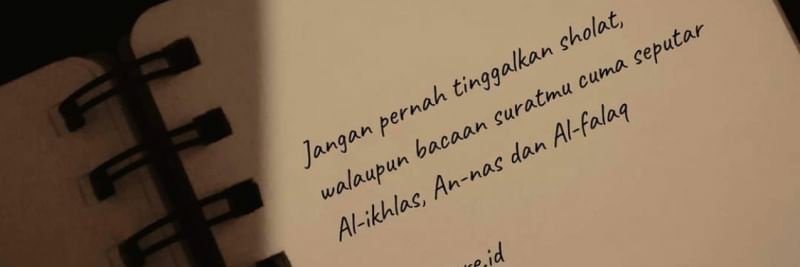 Jangan pernah tinggalkan sholat,
walaupun bacaan suratmu cuma seputar
Al-ikhlas, An-nas dan Al-falaq